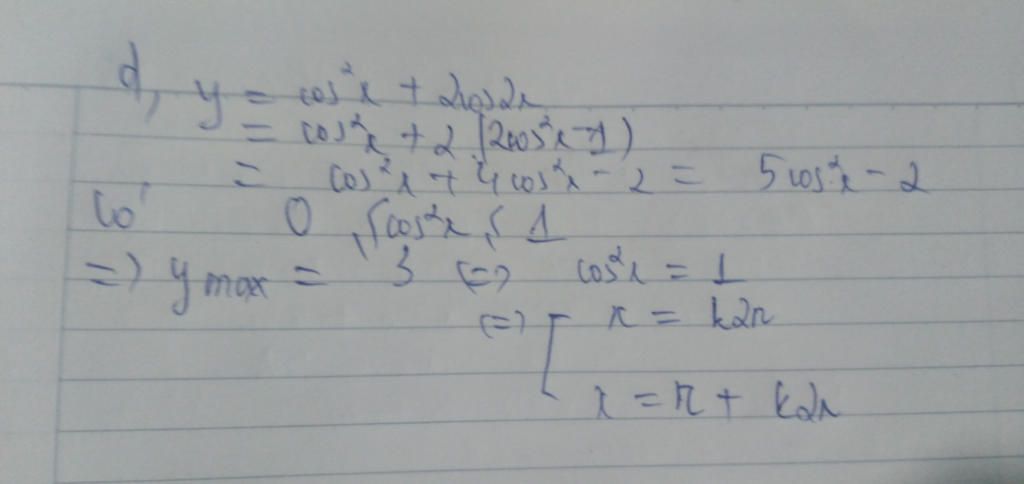 d, y = cos²x + 2cos2x
= cos²x + 2(2cos²x - 1)
= cos²x + 4cos²x - 2 = 5cos²x - 2
Có 0 ≤ cos²x ≤ 1
=> y max = 3 <=> cos²x = 1
<=> [ x = k2π
x = π + k2π